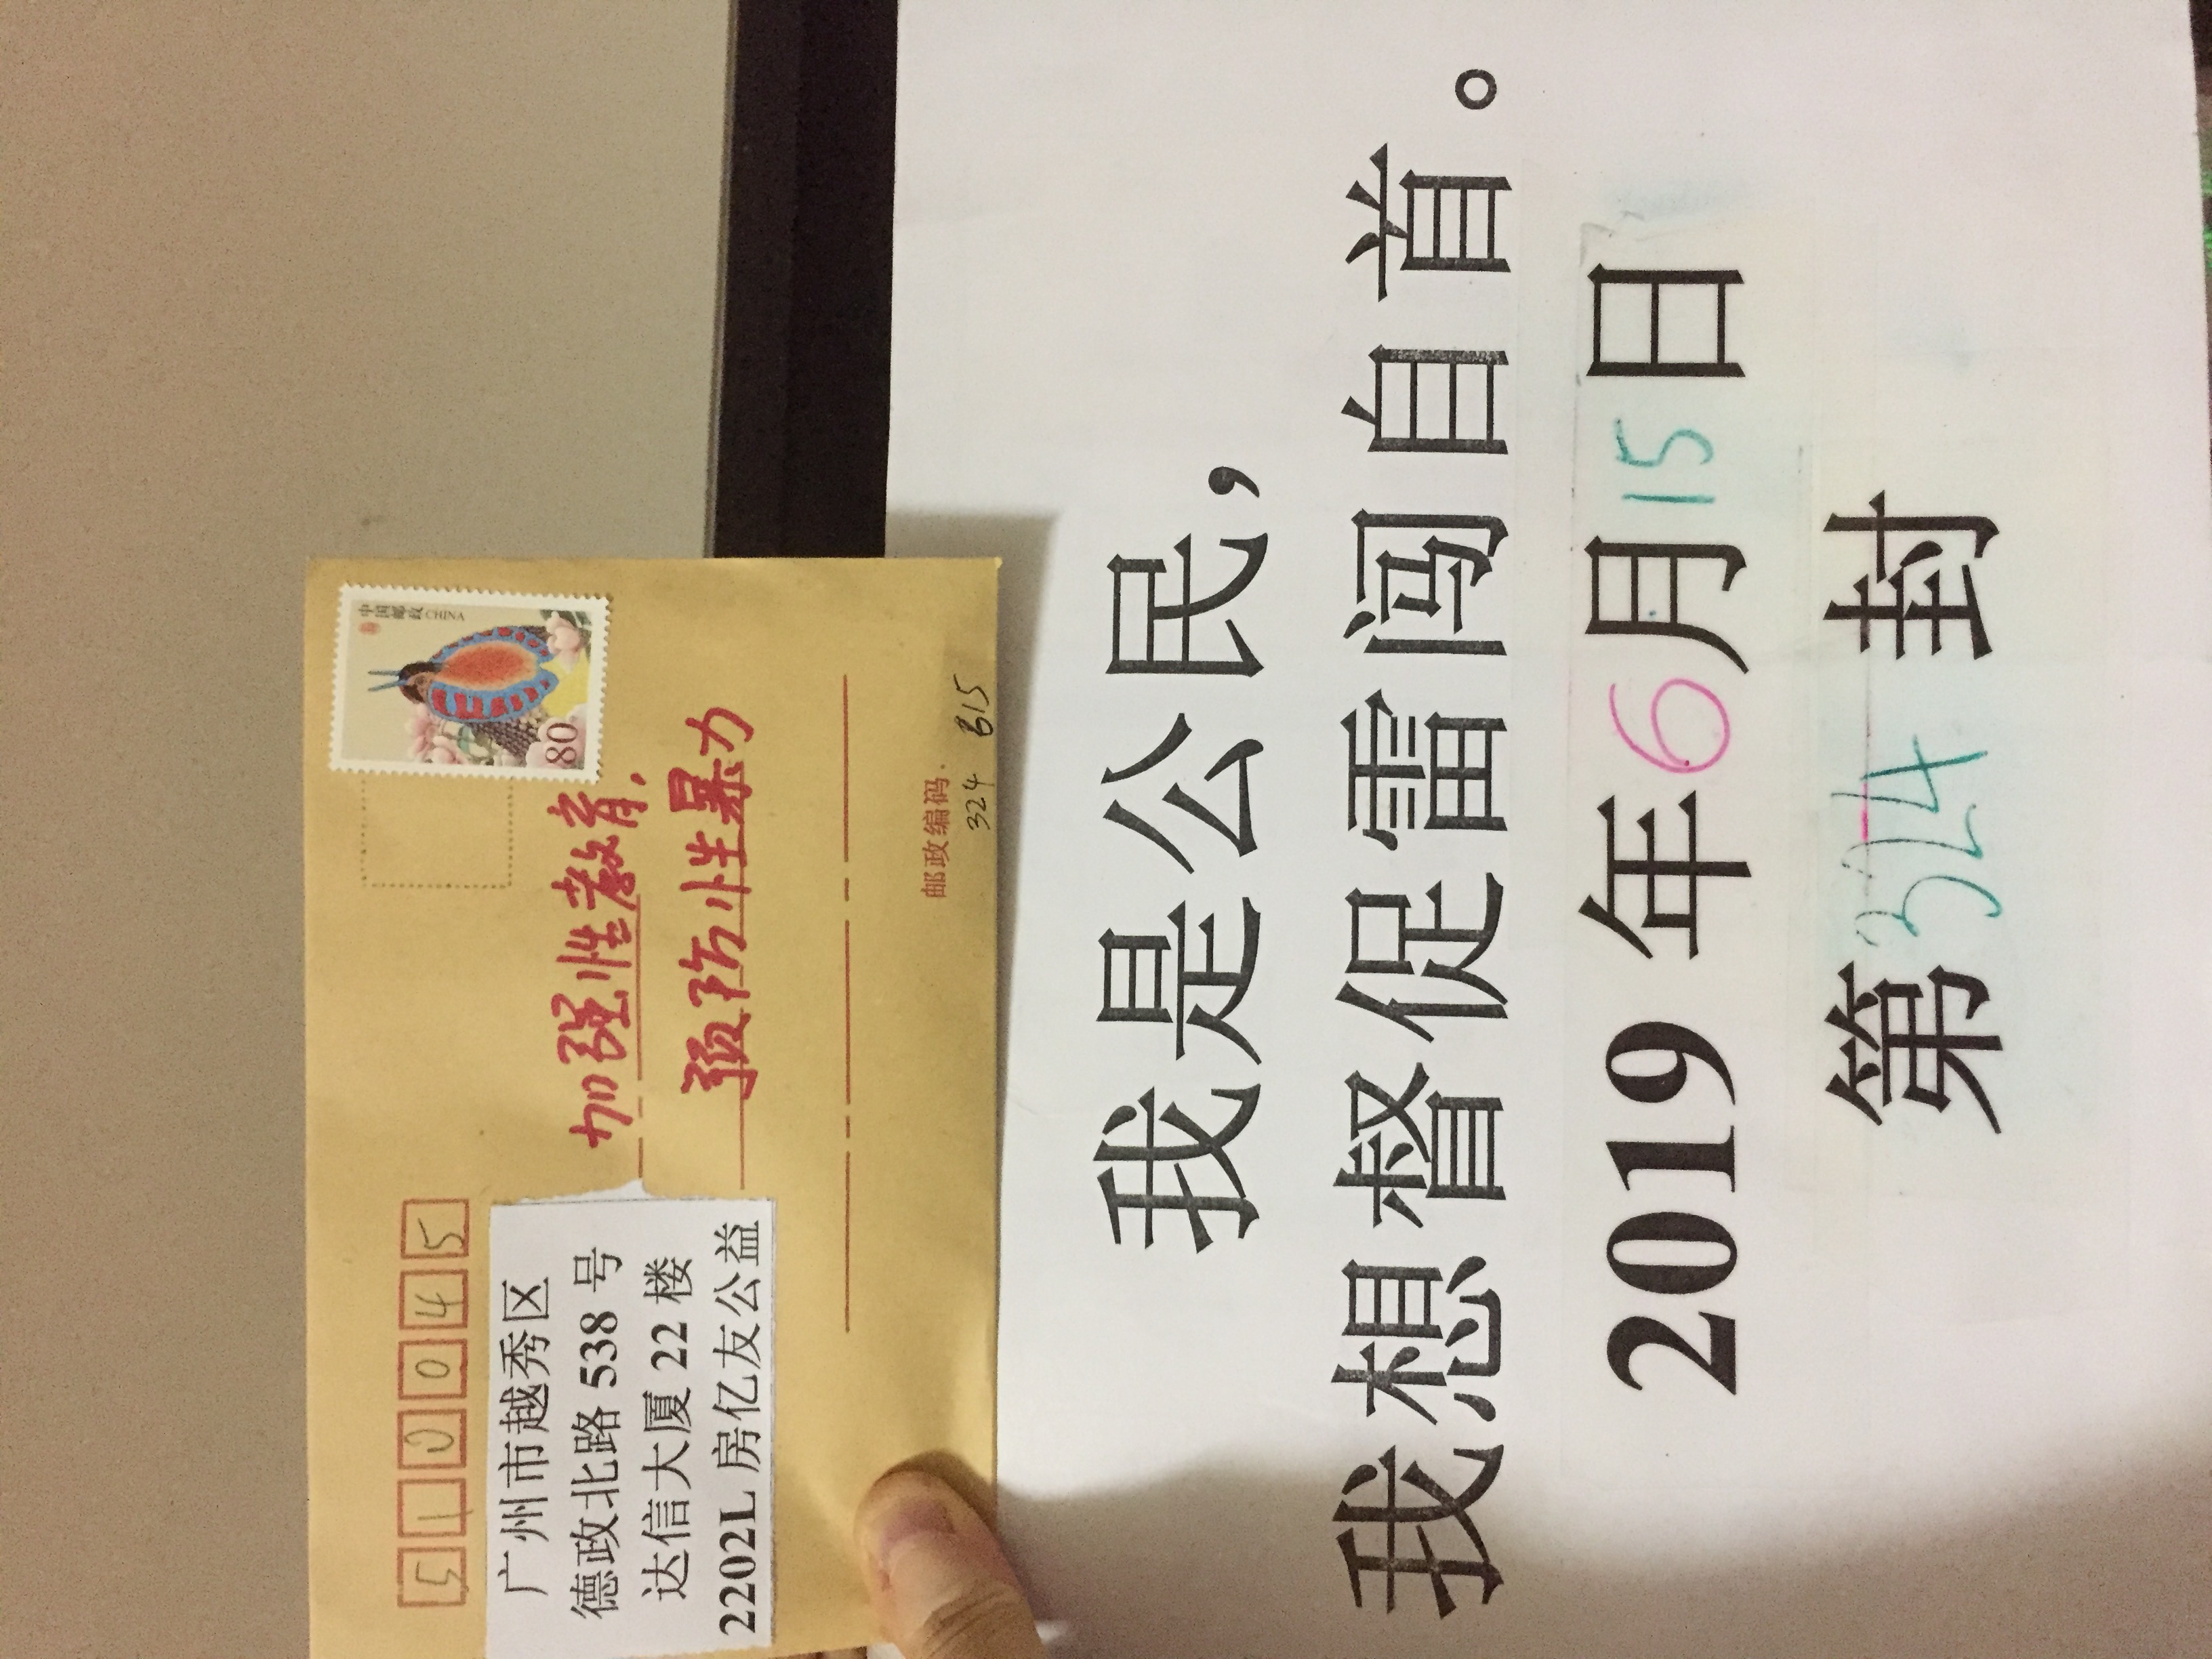 510045
中国邮政 CHINA
80
广州市越秀区
德政北路 538 号
达信大厦 22 楼
2202L 房亿友公益
加强性教育,
预防性暴力
邮政编码.
324 615
我是公民，
我想督促雷闯自首。
2019 年6月15日
第324封